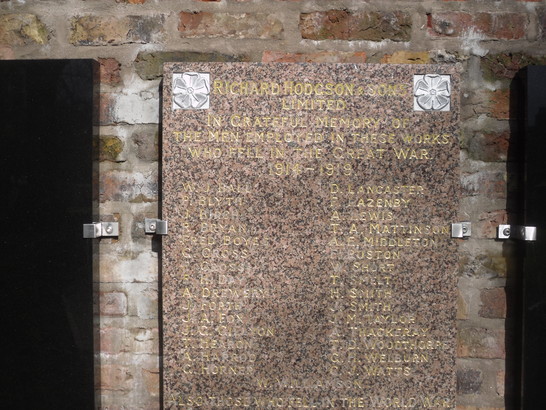 RICHARD HODGSON & SONS
LIMITED
IN GRATEFUL MEMORY OF
THE MEN EMPLOYED IN THESE WORKS
WHO FELL IN THE GREAT WAR.
1914-1919
W. J. BALL
BLYTH
J. BIRCH
BRYAN
FRED BOYES
C. CROSS
H.
A. DREWERY
FOX
T. HERRON
A. HARROD
C. HORNER
D. LANCASTER
F. LAZENBY
A. LEWIS
T. A. MATTINSON
A. E. MIDDLETON
RUSTON
W. SHORT
T. SMELT
H. SMITH
SMITH
TAYLOR
THACKERAY
T. D. WOODTHORPE
C. H. WELBURN
C. J. WATTS
W. WILLIAMSON
ALSO THOSE WHO FELL IN THE WORLD WAR